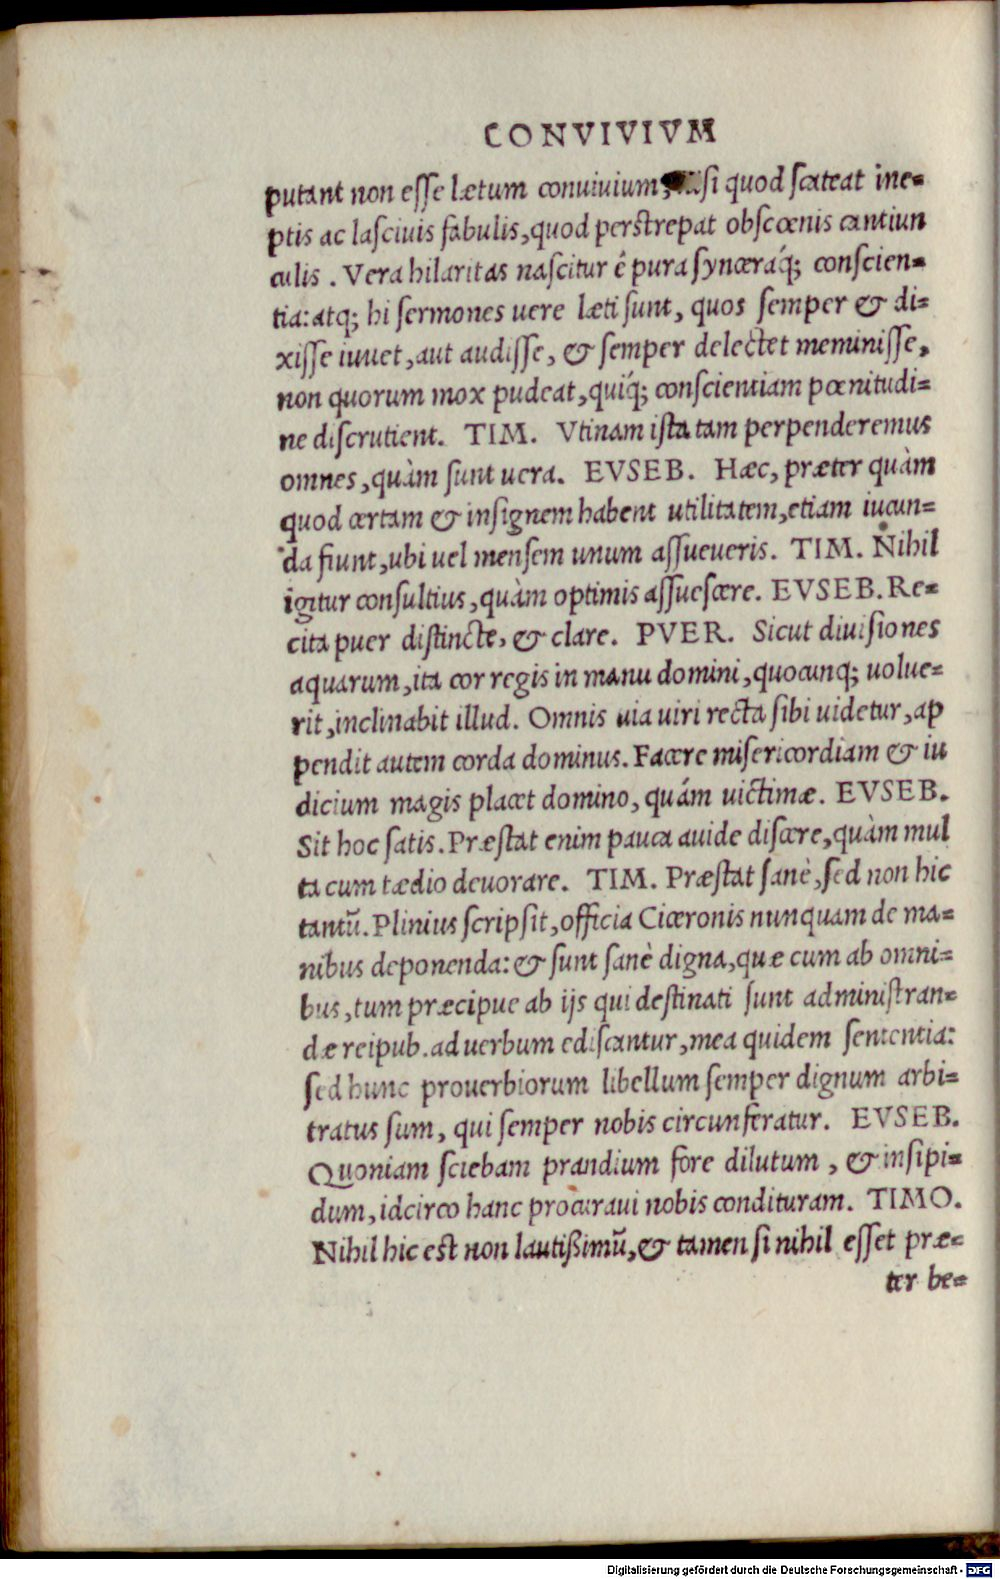 CONVIVIVM
putant non esse lætum conuiuium, nisi quod scateat ine-
ptis ac lasciuis fabulis, quod perstrepat obscœnis cantiun
culis. Vera hilaritas nascitur ẽ pura synceráq; conscien-
tia: atq; hi sermones uere læti sunt, quos semper & di-
xisse iuuet, aut audisse, & semper delectet meminisse,
non quorum mox pudeat, quiq́; conscientiam pœnitudi-
ne discrutient. TIM. Vtinam ista tam perpenderemus
omnes, quàm sunt uera. EVSEB. Hæc, præter quàm
quod certam & insignem habent utilitatem, etiam iucun-
da fiunt, ubi uel mensem unum assueueris. TIM. Nihil
igitur consultius, quàm optimis assuescere. EVSEB. Re-
cita puer distincte, & clare. PVER. Sicut diuisiones
aquarum, ita cor regis in manu domini, quocunq; uolue-
rit, inclinabit illud. Omnis uia uiri recta sibi uidetur, ap
pendit autem corda dominus. Facere misericordiam & iu
dicium magis placet domino, quám uictimæ. EVSEB.
Sit hoc satis. Præstat enim pauca auide discere, quàm mul
ta cum tædio deuorare. TIM. Præstat sanè, sed non hic
tantũ. Plinius scripsit, officia Ciceronis nunquam de ma-
nibus deponenda: & sunt sanè digna, quæ cum ab omni-
bus, tum præcipue ab ijs qui destinati sunt administran-
dæ reipub. ad uerbum ediscantur, mea quidem sententia:
sed hunc prouerbiorum libellum semper dignum arbi-
tratus sum, qui semper nobis circunferatur. EVSEB.
Quoniam sciebam prandium fore dilutum, & insipi-
dum, idcirco hanc procuraui nobis condituram. TIMO.
Nihil hic est non lautißimũ, & tamen si nihil esset præ-
ter be-
Digitalisierung gefördert durch die Deutsche Forschungsgemeinschaft - DFG